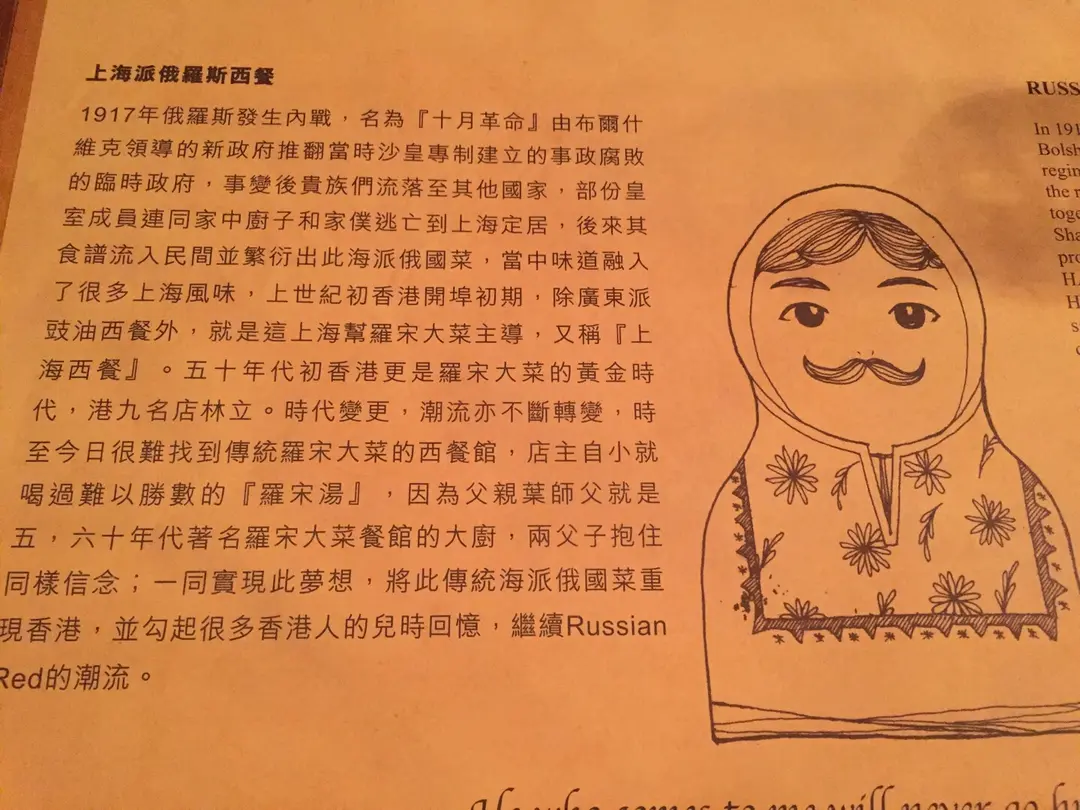 上海派俄羅斯西餐
1917年俄羅斯發生內戰，名為『十月革命』由布爾什
維克領導的新政府推翻當時沙皇專制建立的事政腐敗
的臨時政府，事變後貴族們流落至其他國家，部份皇
室成員連同家中廚子和家僕逃亡到上海定居，後來其
食譜流入民間並繁衍出此海派俄國菜，當中味道融入
了很多上海風味，上世紀初香港開埠初期，除廣東派
豉油西餐外，就是這上海幫羅宋大菜主導，又稱『上
海西餐』。五十年代初香港更是羅宋大菜的黃金時
代，港九名店林立。時代變更，潮流亦不斷轉變，時
至今日很難找到傳統羅宋大菜的西餐館，店主自小就
喝過難以勝數的『羅宋湯』，因為父親葉師父就是
五，六十年代著名羅宋大菜餐館的大廚，兩父子抱住
同樣信念；一同實現此夢想，將此傳統海派俄國菜重
現香港，並勾起很多香港人的兒時回憶，繼續Russian
Red的潮流。
RUSS
In 191
Bolsh
regin
the r
toge
Sha
pro
HA
H
s
He who comes to me will never go h